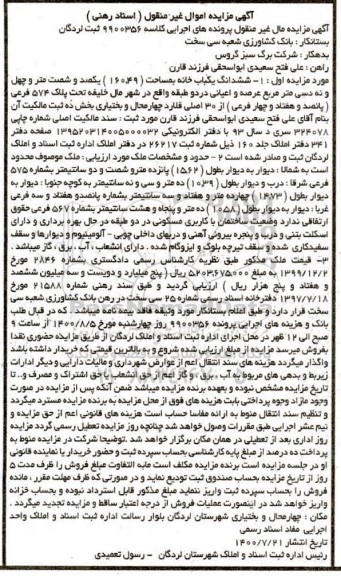 آگهی مزایده اموال غیر منقول ( اسناد رهنی )
آگهی مزایده مال غیر منقول پرونده های اجرایی کلاسه ۹۹۰۰۳۵۶ ثبت لردگان
بستانکار : بانک کشاورزی شعبه سی سخت
بدهکار : شرکت برگ سبز گروس
راهن : علی فتح سعیدی ابواسحقی فرزند قارن
مورد مزایده اول : ۱- ششدانگ یکباب خانه بمساحت ( ۱۶۰،۴۹ ) یکصد و شصت متر و چهل
و نه دسی متر مربع عرصه و اعیانی دردو طبقه واقع در شهر مال خلیفه تحت پلاک ۵۷۴ فرعی
( پانصد و هفتاد و چهار فرعی ) از ۳۰ اصلی فلارد چهارمحال و بختیاری بخش ثبت مالکیت آن
بنام آقای علی فتح سعیدی ابواسحقی فرزند قارن مورد ثبت : سند مالکیت اصلی شماره چاپی
۳۲۴۰۷۸ سری د سال ۹۳ با دفتر الکترونیکی ۱۳۹۵۲۰۳۱۴۰۰۵۰۰۰۰۳۲ صفحه دفتر
۳۴۱ دفتر املاک جلد ۱۶۰ ذیل شماره ثبت ۲۶۲۱۷ در دفتر املاک اداره ثبت اسناد و املاک
لردگان ثبت و صادر شده است ۲- حدود و مشخصات ملک مورد ارزیابی : ملک موصوف محدود
است به شمالا : دیوار به دیوار بطول ( ۱۵،۶۲ ) پانزده مترو شصت و دو سانتیمتر بشماره ۵۷۵
فرعی شرقا : درب و دیوار بطول ( ۱۰،۳۹ ) ده متر و سی و نه سانتیمتر به کوچه جنوبا : دیوار به
دیوار بطول ( ۱۴،۷۳ ) چهارده متر و هفتاد و سه سانتیمتر بشماره پانصدو هفتاد و سه فرعی
غربا : دیوار به دیوار بطول ( ۱۰،۵۸ ) ده متر و پنجاه و هشت سانتیمتر بشماره ۶۷۷ فرعی حقوق
ارتفاقی ندارد وضعیت ساختمان با کاربری مسکونی در دو طبقه در حال بهره برداری و دارای
اسکلت بتنی و درب و پنجره بیرونی آهنی و دربهای داخلی چوبی – آلومینیوم و دیوارها و سقف
سفیدکاری شده و سقف تیرچه بلوک و ایزوگام شده . دارای انشعاب ، آب ، برق ، گاز میباشد .
۳- قیمت ملک مذکور طبق نظریه کارشناس رسمی دادگستری بشماره ۲۸۴۶ مورخ
۱۳۹۹/۱۲/۲ به مبلغ ۵۲۰۳۶۷۵۰۰۰ ریال ( پنج میلیارد و دویست و سه میلیون ششصد
و هفتاد و پنج هزار ریال ) ارزیابی گردید و طبق سند رهنی شماره ۲۱۵۸۸ مورخ
۱۳۹۷/۷/۱۸ دفترخانه اسناد رسمی شماره ۲۵ سی سخت در رهن بانک کشاورزی شعبه سی
سخت قرار دارد و طبق اعلام بستانکار مورد وثیقه فاقد بیمه نامه میباشد . که در قبال طلب
بانک و هزینه های اجرایی پرونده ۹۹۰۰۳۵۶ روز چهارشنبه مورخ ۱۴۰۰/۸/۵ از ساعت ۹
صبح الی ۱۲ ظهر در محل اجرای اداره ثبت اسناد و املاک لردگان از طریق مزایده حضوری نقدا
بفروش میرسد مزایده از مبلغ ارزیابی شده شروع و به بالاترین قیمتی که خریدار داشته باشد
واگذار میگردد هزینه های سند انتقال اعم از عوارض شهرداری و مالیات دارایی و دیگر ادارات
زیربط و بدهی های مربوط به آب ، برق و گاز اعم از حق انشعاب یا حق اشتراک و مصرف و . . تا
تاریخ مزایده مشخص نبوده و بعهده برنده مزایده میباشد ضمن آنکه پس از مزایده در صورت
وجود مازاد وجوه پرداختی بابت هزینه های فوق از محل مزایده به برنده مزایده مسترد میگردد
و تنظیم سند انتقال منوط به ارائه مفاسا حساب است هزینه های قانونی اعم از حق مزایده و
نیم عشر اجرایی طبق مقررات وصول خواهد شد چنانچه روز مزایده تعطیل رسمی گردد مزایده
روز اداری بعد از تعطیلی در همان مکان برگزار خواهد شد .توضیحا شرکت در مزایده منوط به
پرداخت ده درصد از مبلغ پایه کارشناسی بحساب سپرده ثبت و حضور خریدار یا نماینده قانونی
او در جلسه مزایده است برنده مزایده مکلف است مابه التفاوت مبلغ فروش را ظرف مدت ۵
روز از تاریخ مزایده بحساب صندوق ثبت تودیع نماید و در صورتی که ظرف مهلت مقرر ، مانده
فروش را بحساب سپرده ثبت واریز ننماید مبلغ مذکور قابل استرداد نبوده و بحساب خزانه
واریز خواهد شد در اینصورت عملیات فروش از درجه اعتبار ساقط و مزایده تجدید میگردد .
مکان : چهارمحال و بختیاری شهرستان لردگان بلوار رسالت اداره ثبت اسناد و املاک واحد
اجرایی مفاد اسناد رسمی
تاریخ انتشار ۱۴۰۰/۷/۲۱
رئیس اداره ثبت اسناد و املاک شهرستان لردگان – رسول تعمیدی